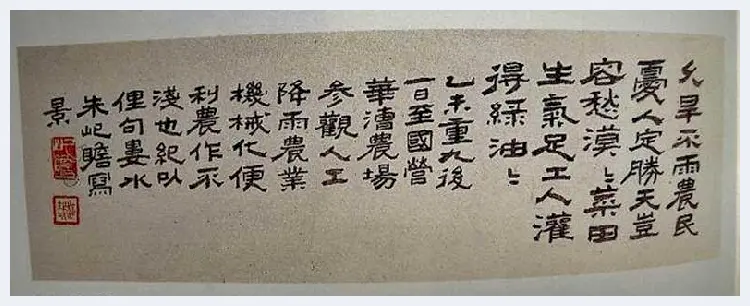 久旱不雨農民
憂人定勝天豈
容愁漠〻菜田
生氣足工人灌
得綠油〻
乙未重九後
一日至國營
華漕農場
參觀人工
降雨農業
機械化便
利農作不
淺也紀以
俚句婁水
朱屺瞻寫
景